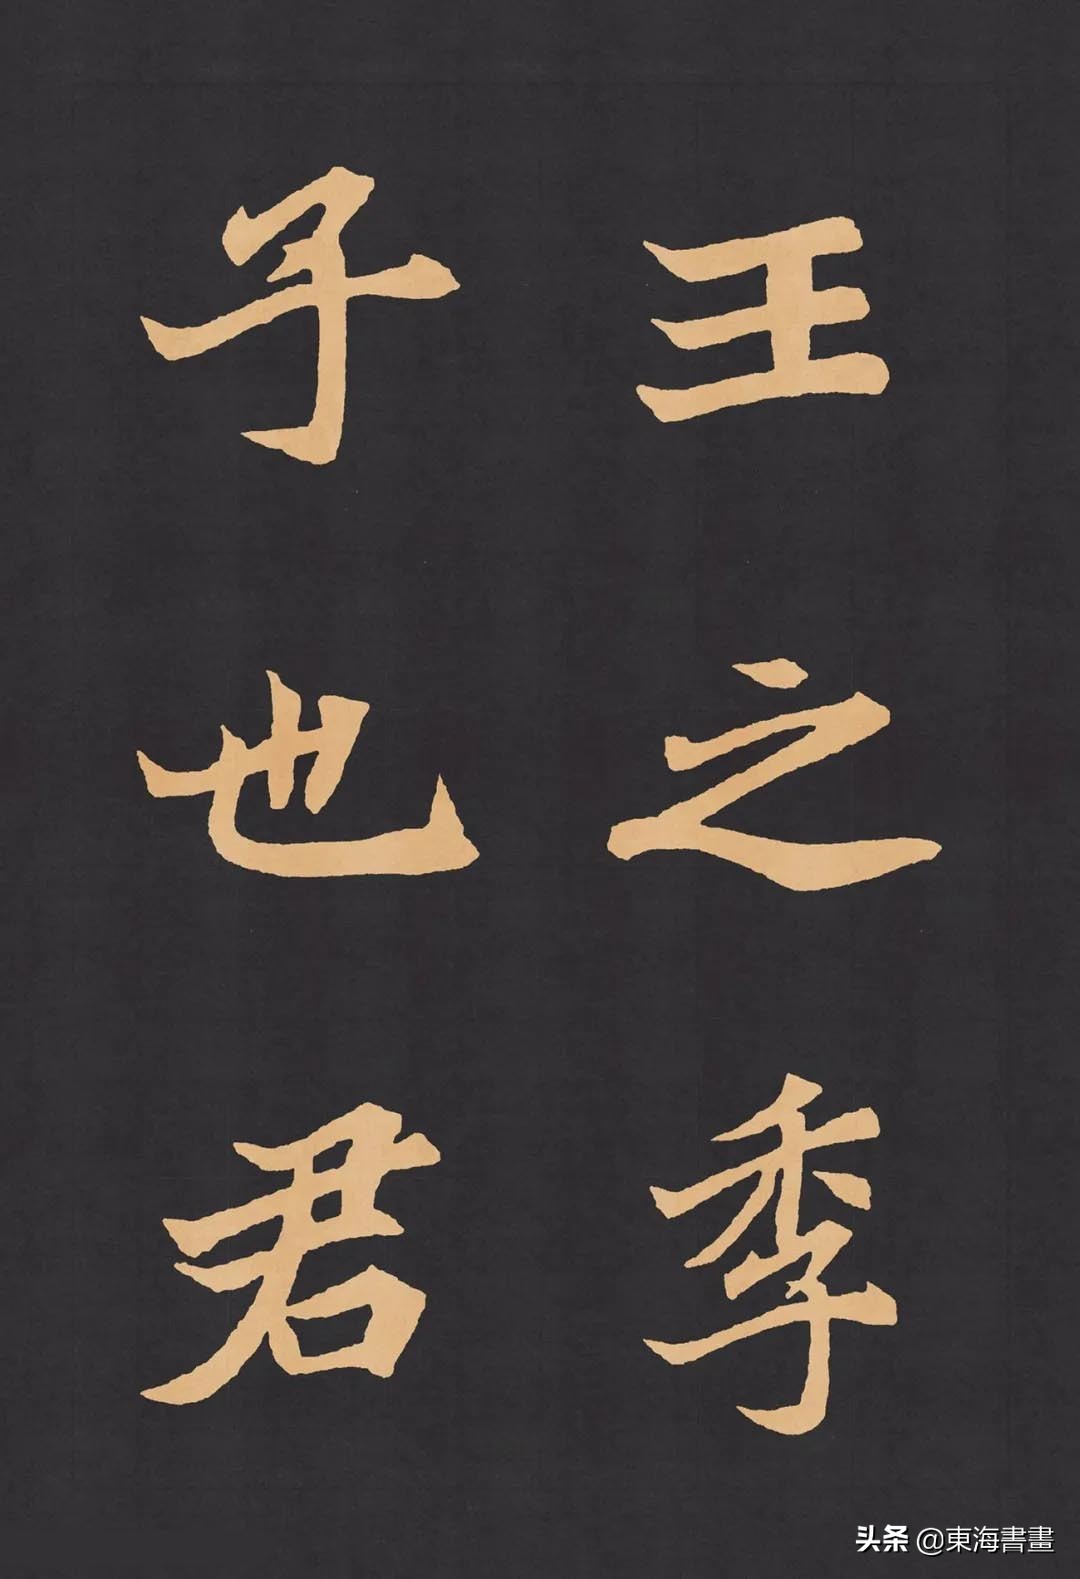 王之季
子也君
头条 @東海書畫